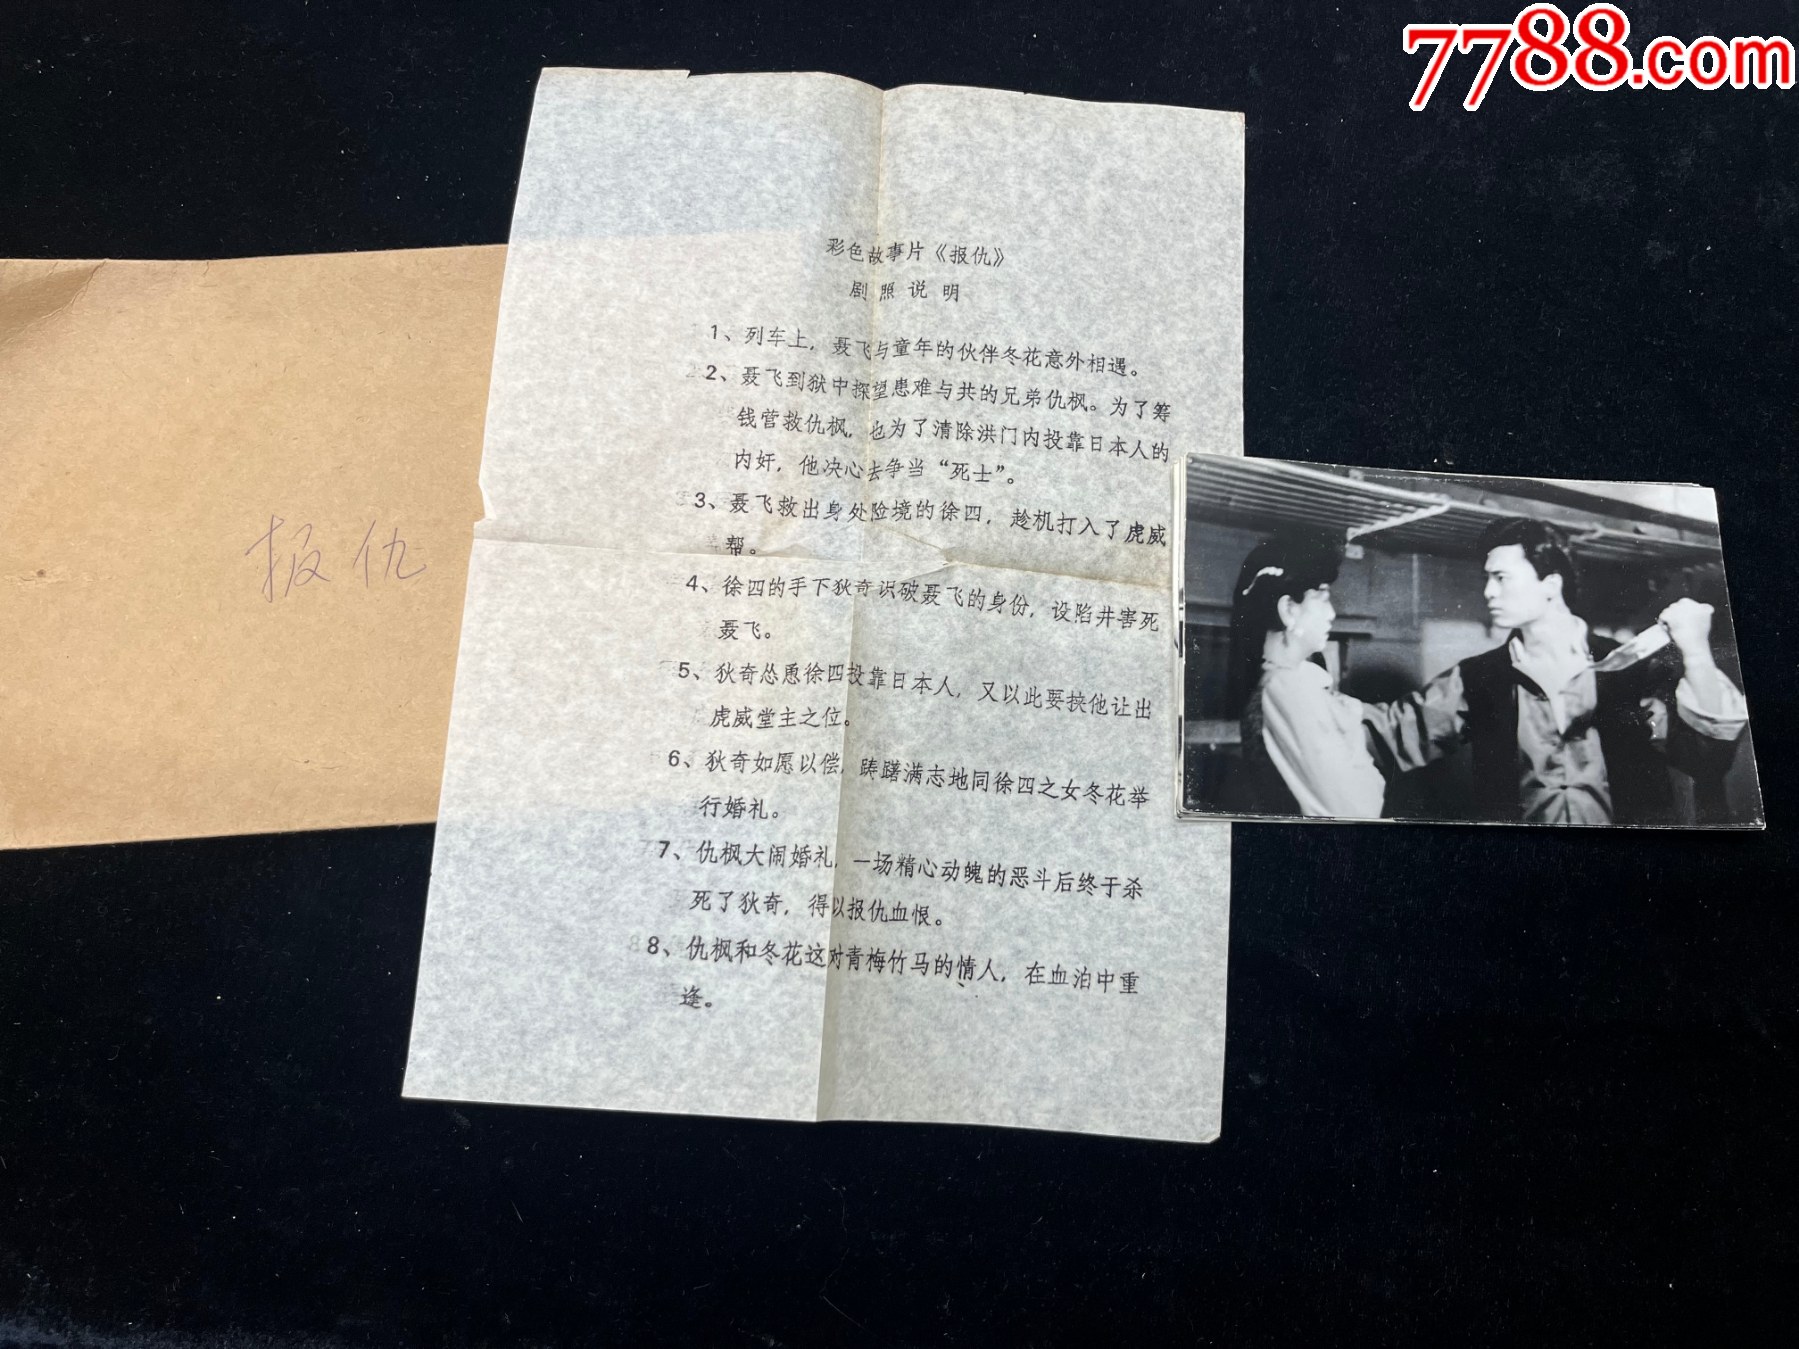 7788.com
报仇
彩色故事片《报仇》
剧照说明
1、列车上，聂飞与童年的伙伴冬花意外相遇。
2、聂飞到狱中探望患难与共的兄弟仇枫。为了筹
钱营救仇枫，也为了清除洪门内投靠日本人的
内奸，他决心去争当“死士”。
3、聂飞救出身处险境的徐四，趁机打入了虎威
帮。
4、徐四的手下狄奇识破聂飞的身份，设陷井害死
聂飞。
5、狄奇怂恿徐四投靠日本人，又以此要挟他让出
虎威堂主之位。
6、狄奇如愿以偿，踌躇满志地同徐四之女冬花举
行婚礼。
7、仇枫大闹婚礼，一场精心动魄的恶斗后终于杀
死了狄奇，得以报仇血恨。
8、仇枫和冬花这对青梅竹马的情人，在血泊中重
逢。